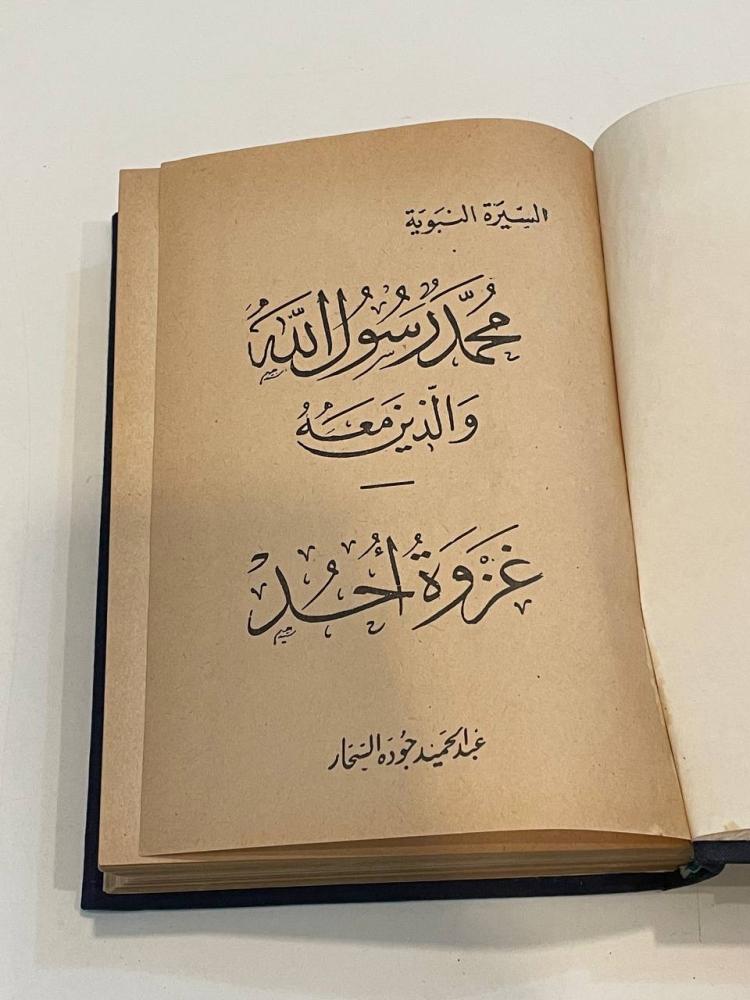 السِّيرَة النبَوِيَة
مُحَمَّد رَسُولُ اللَّهِ
وَالَّذِينَ مَعَهُ
غَزْوَةُ أُحُدْ
عَبد الحَميد جَودَه السَّحّار